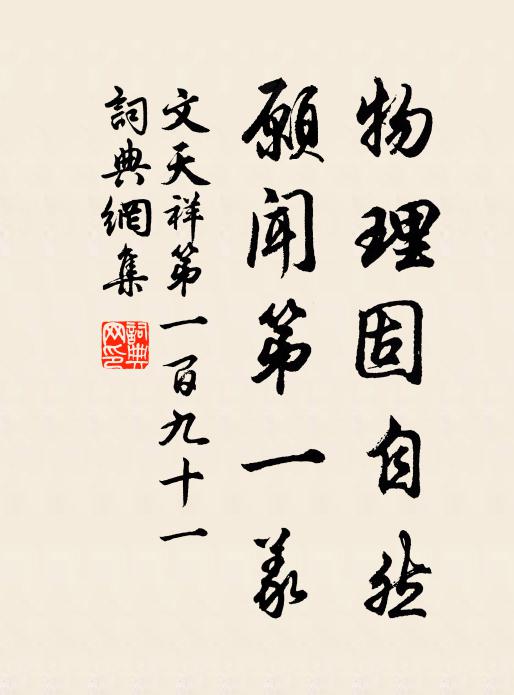 物理固自然
願聞第一義
文天祥第一百九十一
詞典網集
詞典網印